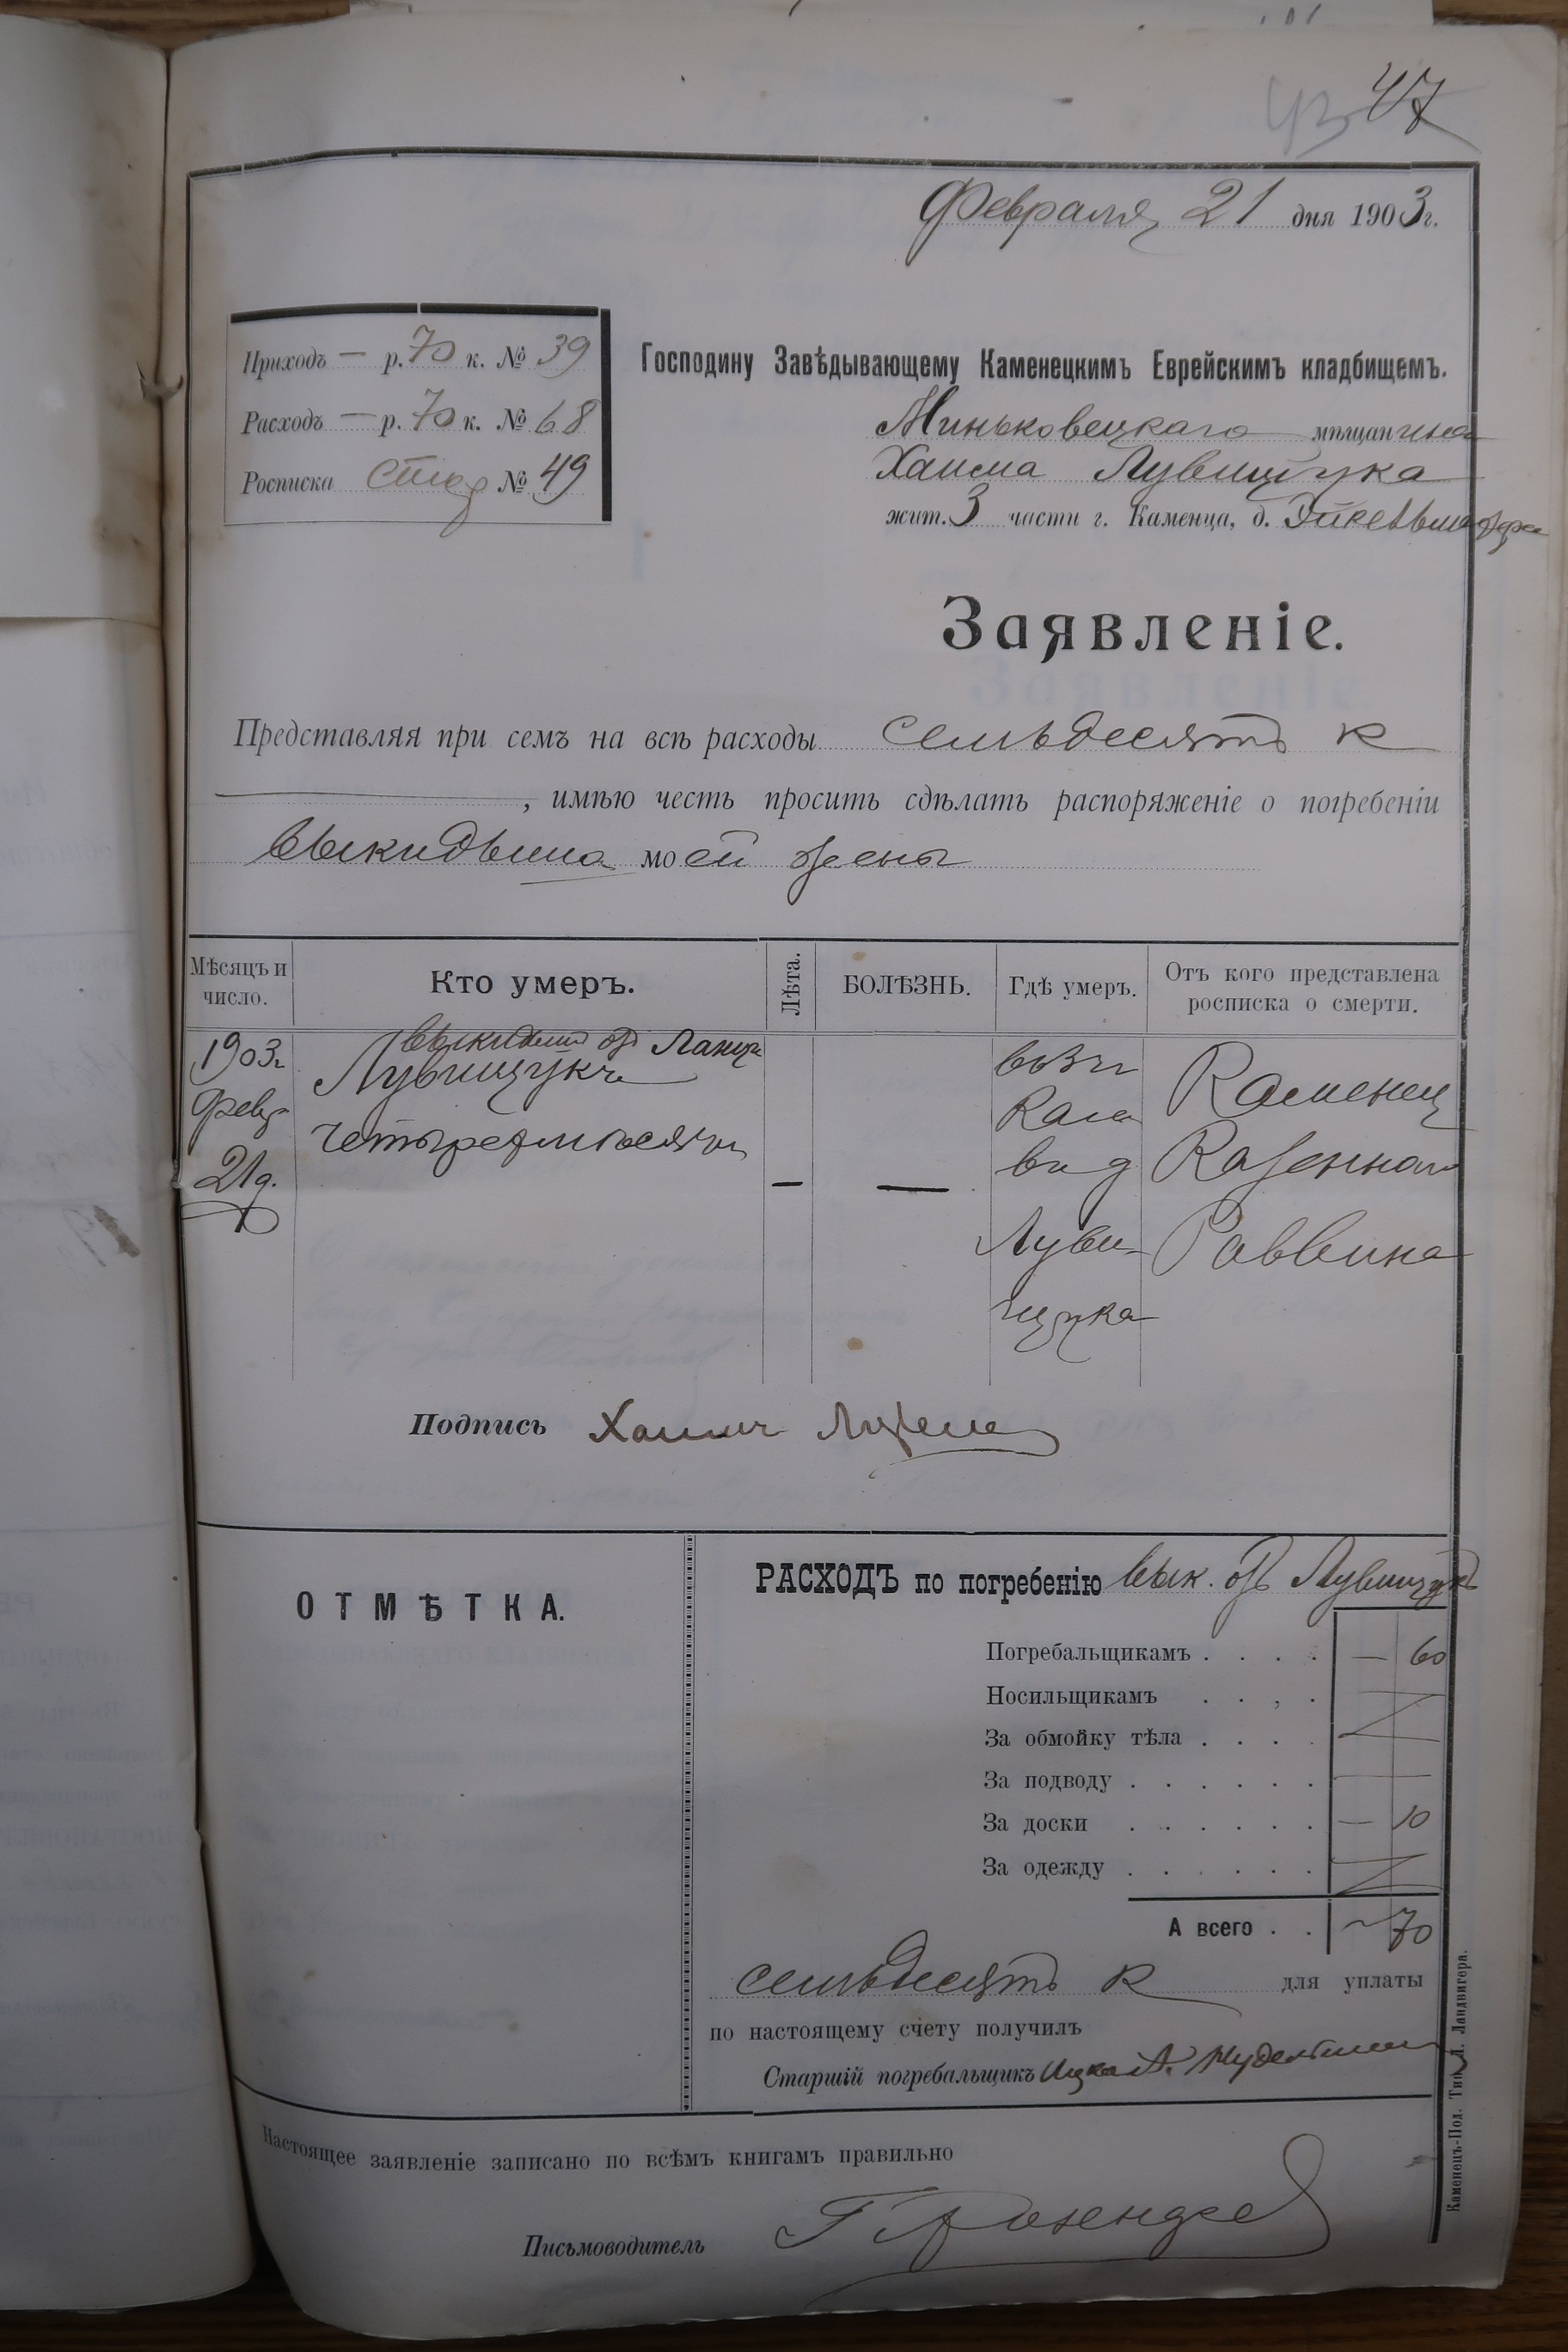 43 47
Февраля 21 дня 1903 г.
Приходъ — р. 70 к. № 39
Расходъ — р. 70 к. № 68
Росписка № 49
Господину Завѣдывающему Каменецкимъ Еврейскимъ кладбищемъ.
Миньковецкаго мѣщанина
Хаима Лувищука
жит. 3 части г. Каменца, д.
Заявленіе.
Представляя при семъ на всѣ расходы семьдесятъ к
, имѣю честь просить сдѣлать распоряженіе о погребеніи
выкидыша моей жены
Мѣсяцъ и число.
Кто умеръ.
Лѣта.
БОЛѢЗНЬ.
Гдѣ умеръ.
Отъ кого представлена росписка о смерти.
1903 г
Февр
21 д.
выкидышъ отъ
Лувищукъ
четырехмѣсячн
—
—
въ 3 ч
Кам
въ д
Луви-
щука
Каменец
Казеннаго
Раввина
Подпись Хаимъ
ОТМѢТКА.
РАСХОДЪ по погребенію вык. отъ Лувищукъ
Погребальщикамъ . . . . — 60
Носильщикамъ . . . .
За обмойку тѣла . . . .
За подводу . . . . . .
За доски . . . . . . — 10
За одежду . . . . . .
А всего . . 70
семьдесятъ к для уплаты
по настоящему счету получилъ
Старшій погребальщикъ
Настоящее заявленіе записано по всѣмъ книгамъ правильно
Письмоводитель
Каменецъ-Под. Тип. Л. Ландвигера.